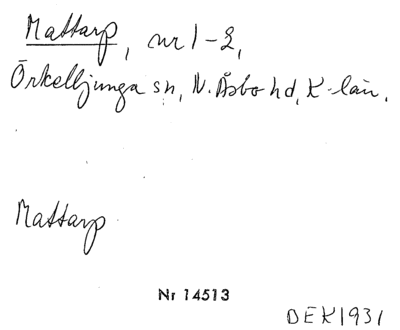 Mattarp, nr 1-2,
Örkelljunga sn, N. Åsbo hd, K-län.
Mattarp
Nr 14513
DEK 1931